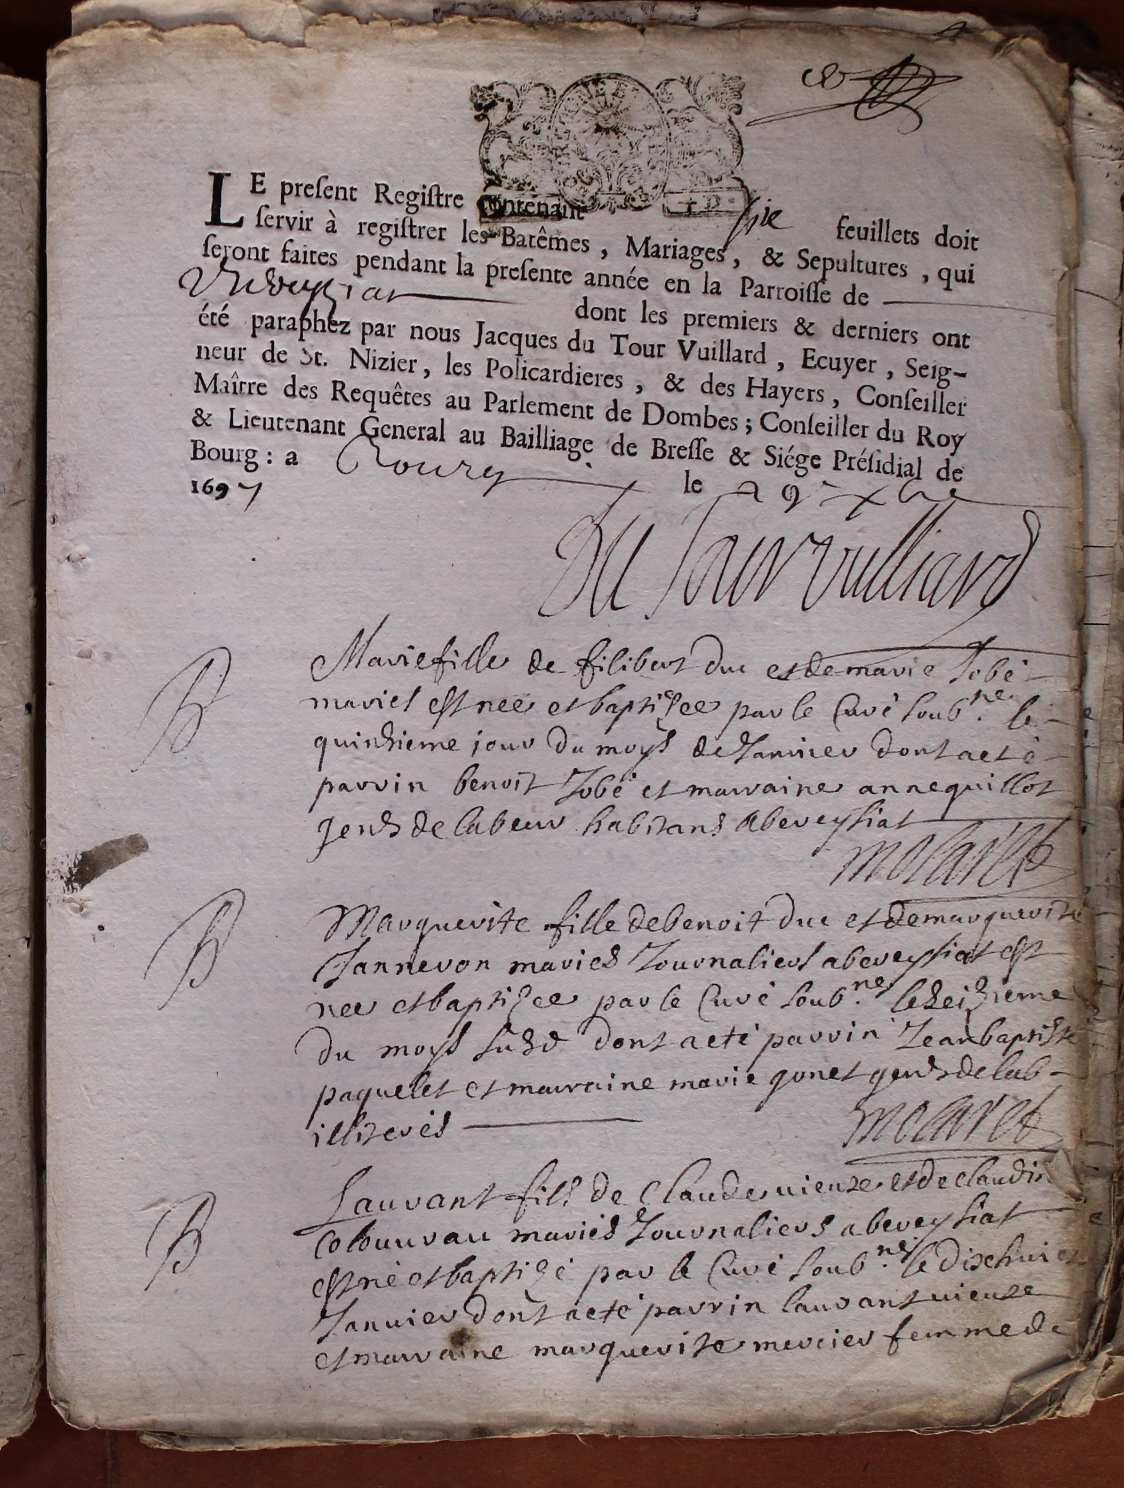 LE preſent Regiſtre Contenant six feuillets doit
ſervir à regiſtrer les Batêmes, Mariages, & Sepultures, qui
ſeront faites pendant la preſente année en la Parroiſſe de
dont les premiers & derniers ont
été paraphez par nous Jacques du Tour Vuillard, Ecuyer, Seig-
neur de St. Nizier, les Policardieres, & des Hayers, Conſeiller
Maître des Requêtes au Parlement de Dombes; Conſeiller du Roy
& Lieutenant General au Bailliage de Breſſe & Siége Préſidial de
Bourg: a Bourg le 29e xbre
1697
Du Tour vuilliard
B
Marie fille de filibert Duc et de marie Jobé
mariés est née et baptisée par le Curé soub.né le
quinsieme jour du moys de Janvier dont acte
parrin benoit Jobé et marraine anne quillot
gens de labeur habitans a beveysiat
molaret
B
Marguerite fille de benoit duc et de marguerite
Janneron mariés Journaliers a beveysiat est
née et baptisée par le Curé soub.né le seizieme
du moys susd dont acte parrin Jean baptiste
paquelet et marraine marie gonet gens de lab-
illiterés
molaret
B
Laurant fils de Claude vieuze et de claudine
mariés Journaliers a beveysiat
est né et baptisé par le Curé soub.né le dixhuit
Janvier dont acte parrin laurant vieuze
et marraine marguerite mercier femme de